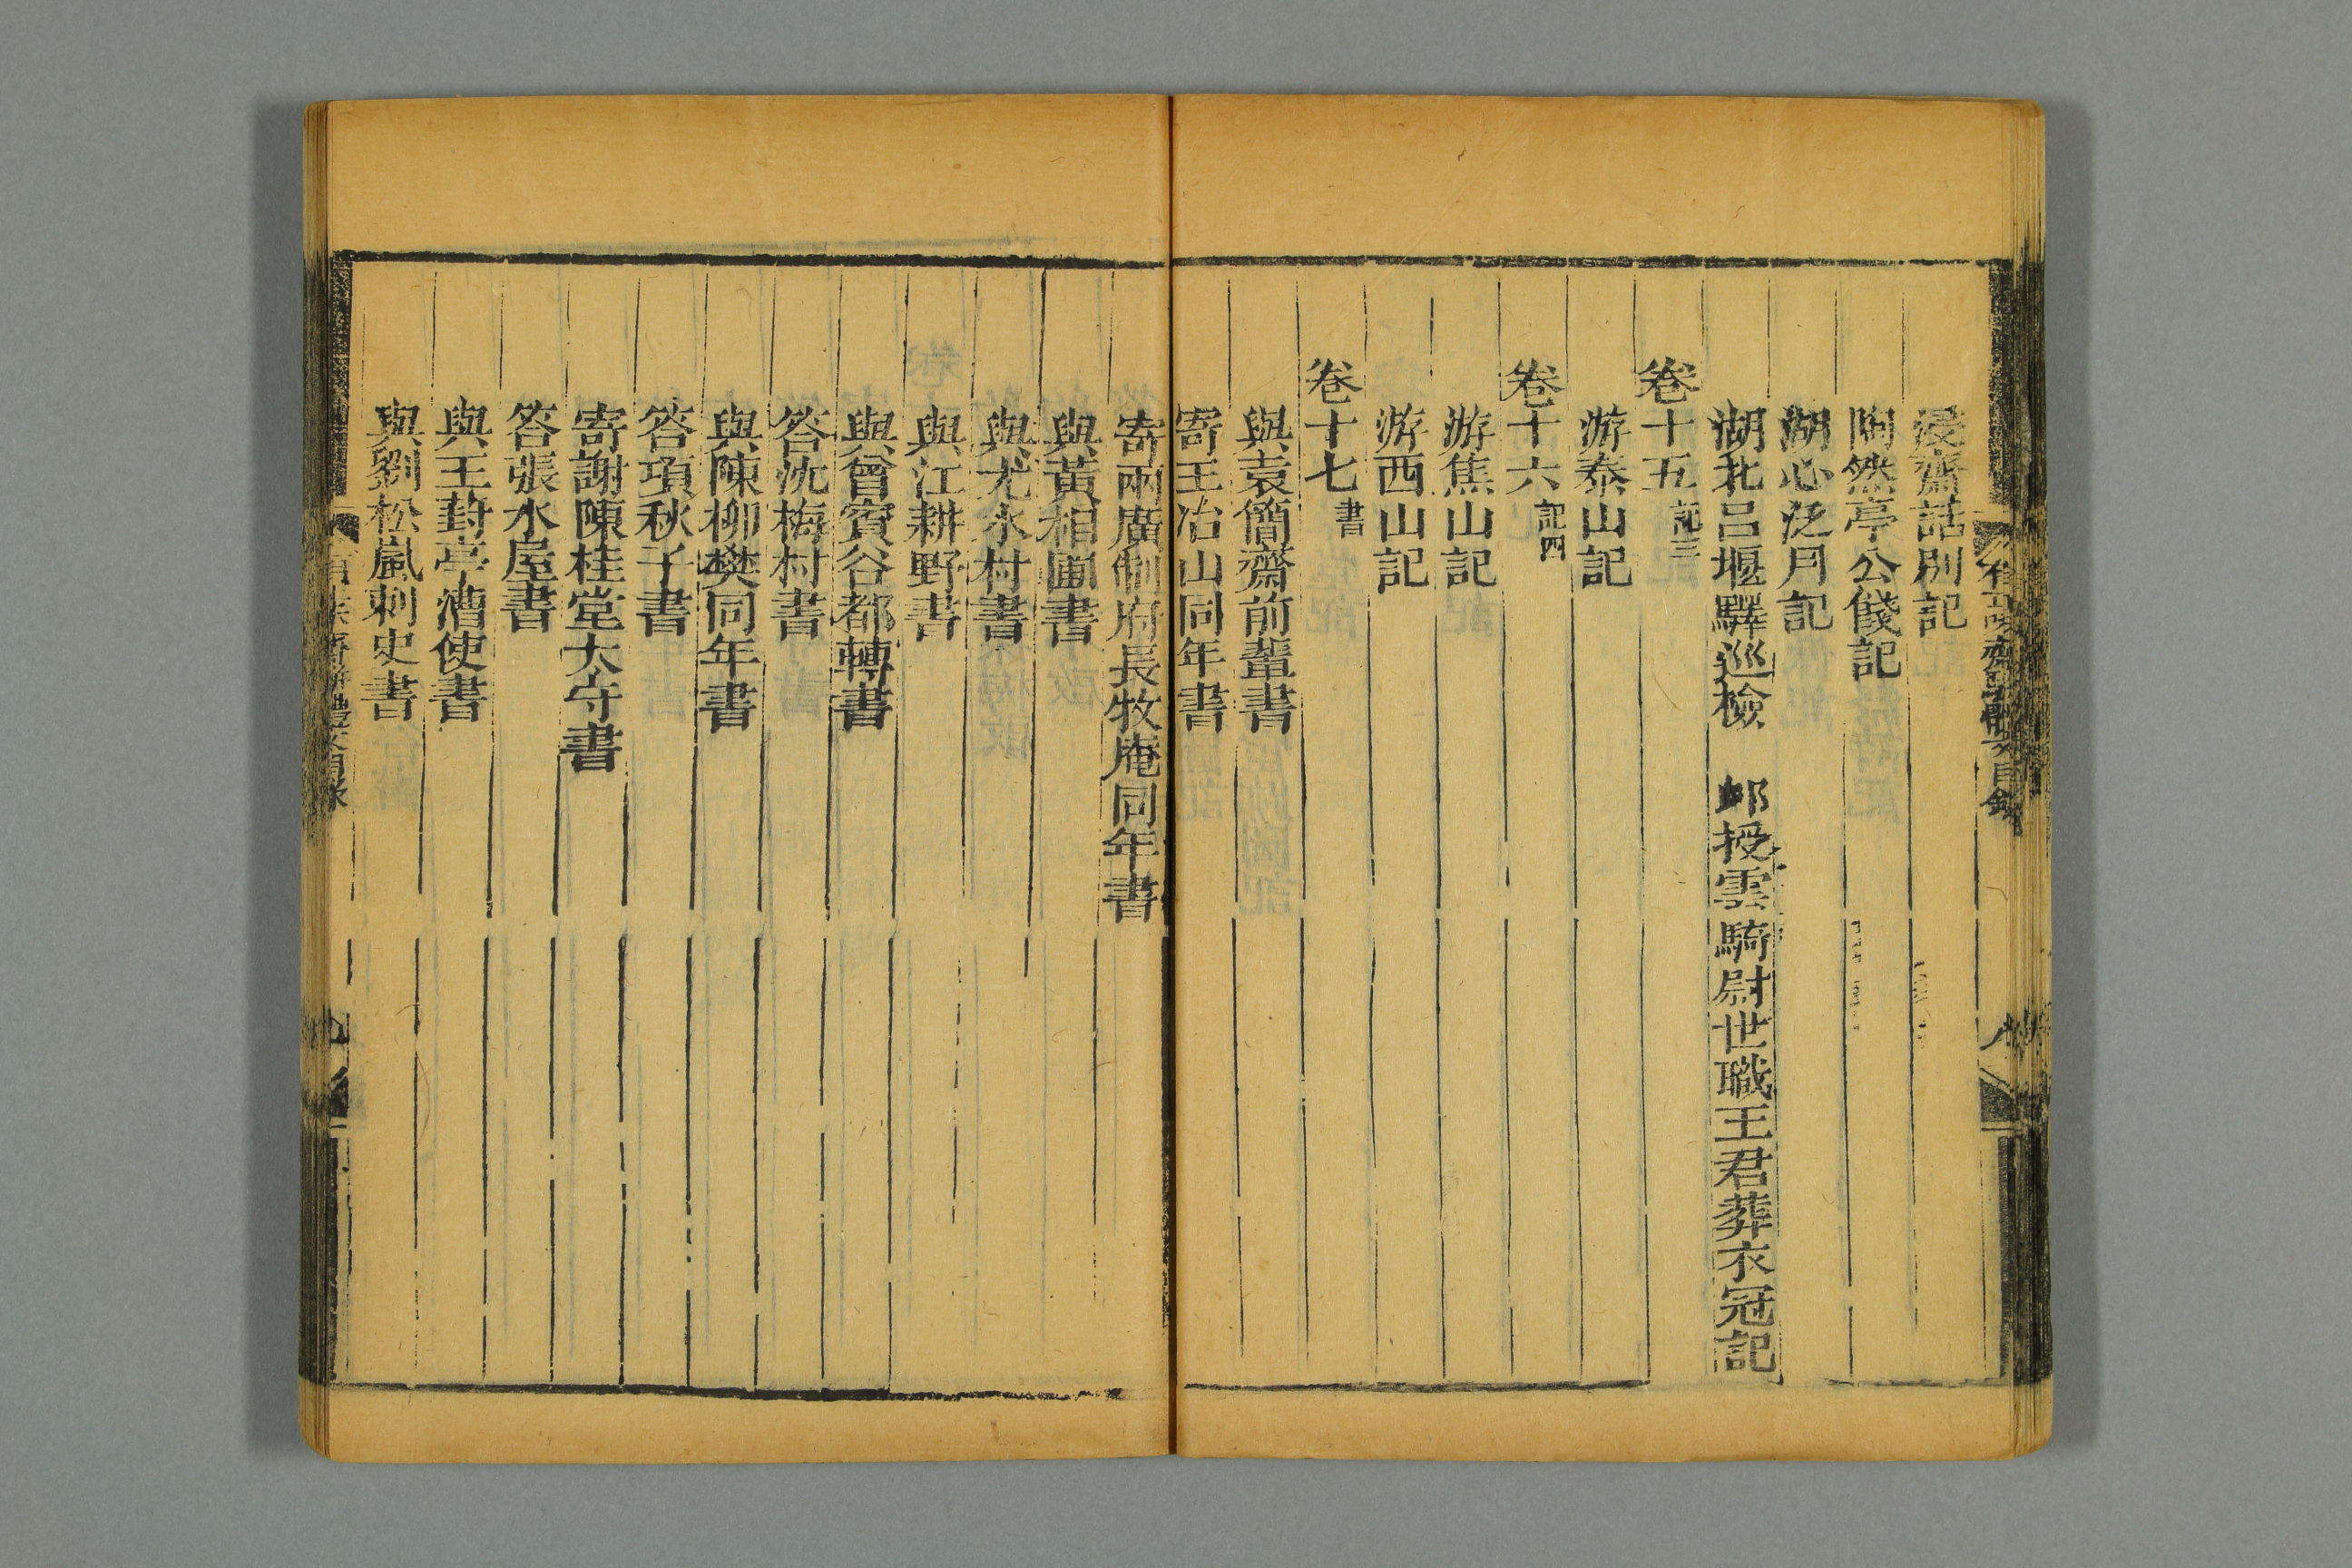 有正味齋駢體文目錄
浸齋話別記
陶然亭公餞記
湖心泛月記
湖北呂堰驛巡檢 䘏授雲騎尉世職王君葬衣冠記
卷十五 記三
游泰山記
卷十六 記四
游焦山記
游西山記
卷十七 書
與袁簡齋前輩書
寄王冶山同年書
寄兩廣制府長牧庵同年書
與黃相圃書
與尤水村書
與江耕野書
與曾賓谷都轉書
答沈梅村書
與陳柳樊同年書
答項秋子書
寄謝陳桂堂太守書
答張水屋書
與王葑亭漕使書
與劉松嵐刺史書
有正味齋駢體文目錄